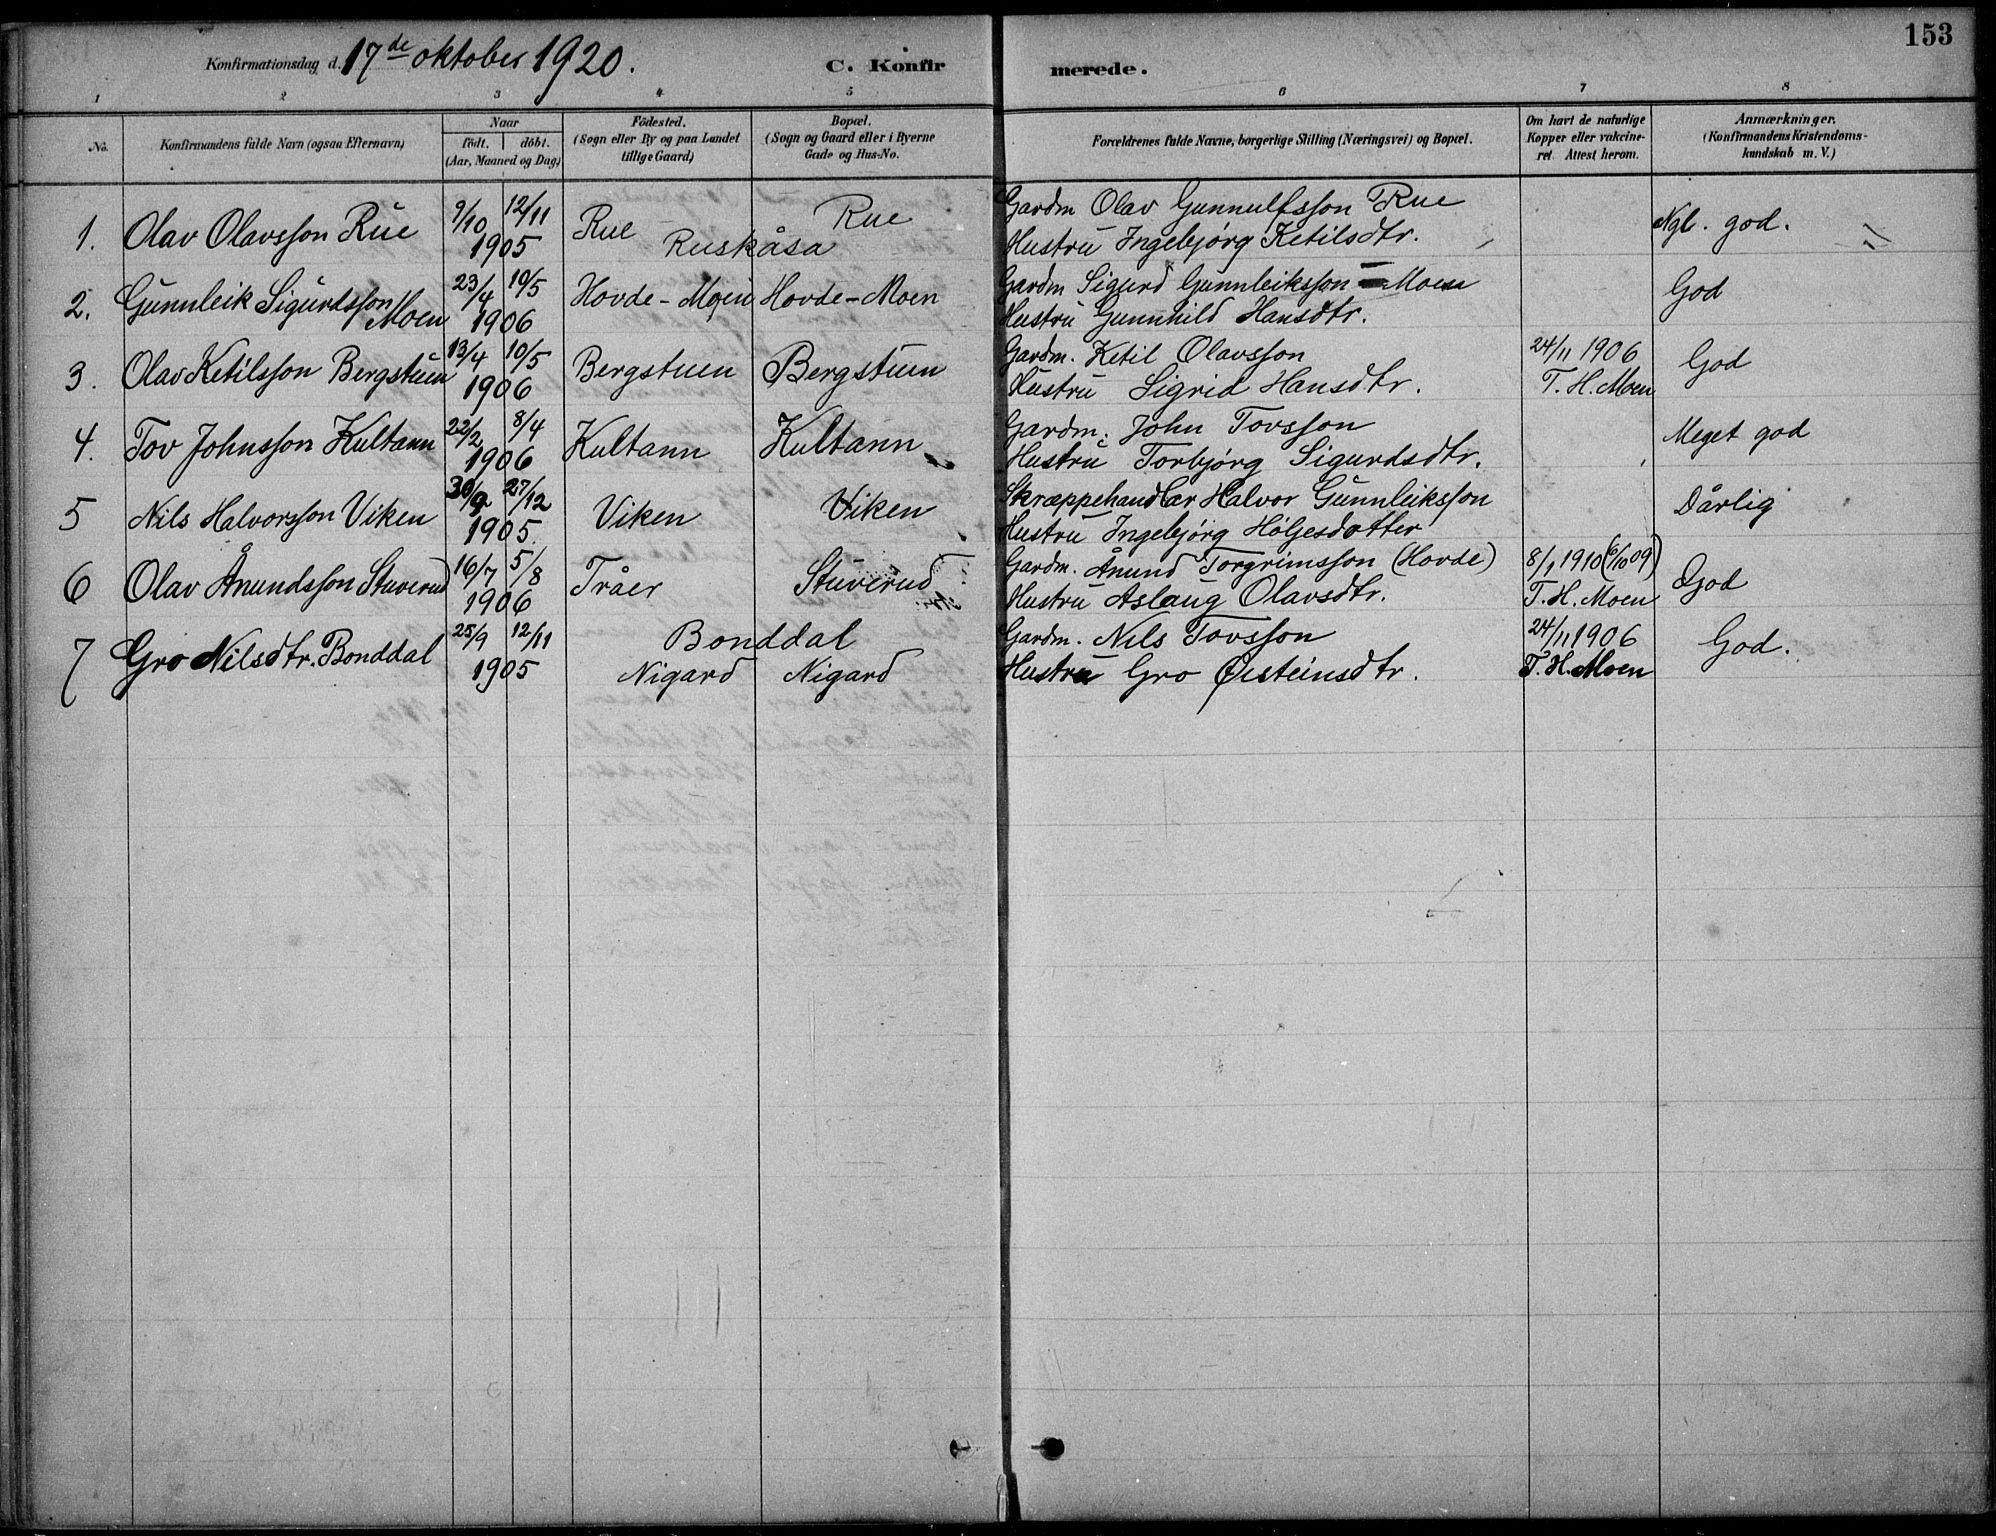 153
Konfirmationsdag d. 17de oktober 1920. C. Konfirmerede.
1 2 3 4 5 6 7 8
No. Konfirmandens fulde Navn (ogsaa Efternavn) Naar födt. döbt. (Aar, Maaned og Dag) Födested. (Sogn eller By og paa Landet tillige Gaard) Bopæl. (Sogn og Gaard eller i Byerne Gade og Hus-No. Forældrenes fulde Navne, borgerlige Stilling (Næringsvei) og Bopæl. Om havt de naturlige Kopper eller vakcineret. Attest herom. Anmærkninger. (Konfirmandens Kristendomskundskab m. V.)
1. Olav Olavsson Rue 9/10 12/11 Rue Rue Gardm Olav Gunnulfsson Rue Ngl. god.
1905 Ruskåsa Hustru Ingebjørg Ketilsdtr.
2. Gunnleik Sigurdsson Moen 23/4 19/5 Hovde-Moen Hovde-Moen Gardm Sigurd Gunnleiksson Moen God
1906 Hustru Gunnhild Hansdtr.
3. Olav Ketilsson Bergstuen 13/4 10/5 Bergstuen Bergstuen Gardm. Ketil Olavsson 24/11 1906 God
1906 Hustru Sigrid Hansdtr. T. H. Moen
4. Tov Johnsson Kultann 22/2 8/4 Kultann Kultann Gardm. John Tovsson Meget god
1906 Hustru Torbjørg Sigurdsdtr.
5 Nils Halvorsson Viken 30/9 27/12 Viken Viken Skræppehandlar Halvor Gunnleiksson Dårlig
1905. Hustru Ingebjørg Høljesdotter
6 Olav Ånundsson Stuverud 16/7 5/8 Tråer Stuverud Gardm. Ånund Torgrimsson (Hovde) 8/1 1910 (6/10 09) God
1906 Hustru Aslaug Olavsdtr. T. H. Moen
7 Gro Nilsdtr. Bonddal 25/9 12/11 Bonddal Gardm. Nils Tovsson 24/11 1906 God.
1905 Nigard Nigard Hustru Gro Øisteinsdtr. T. H. Moen